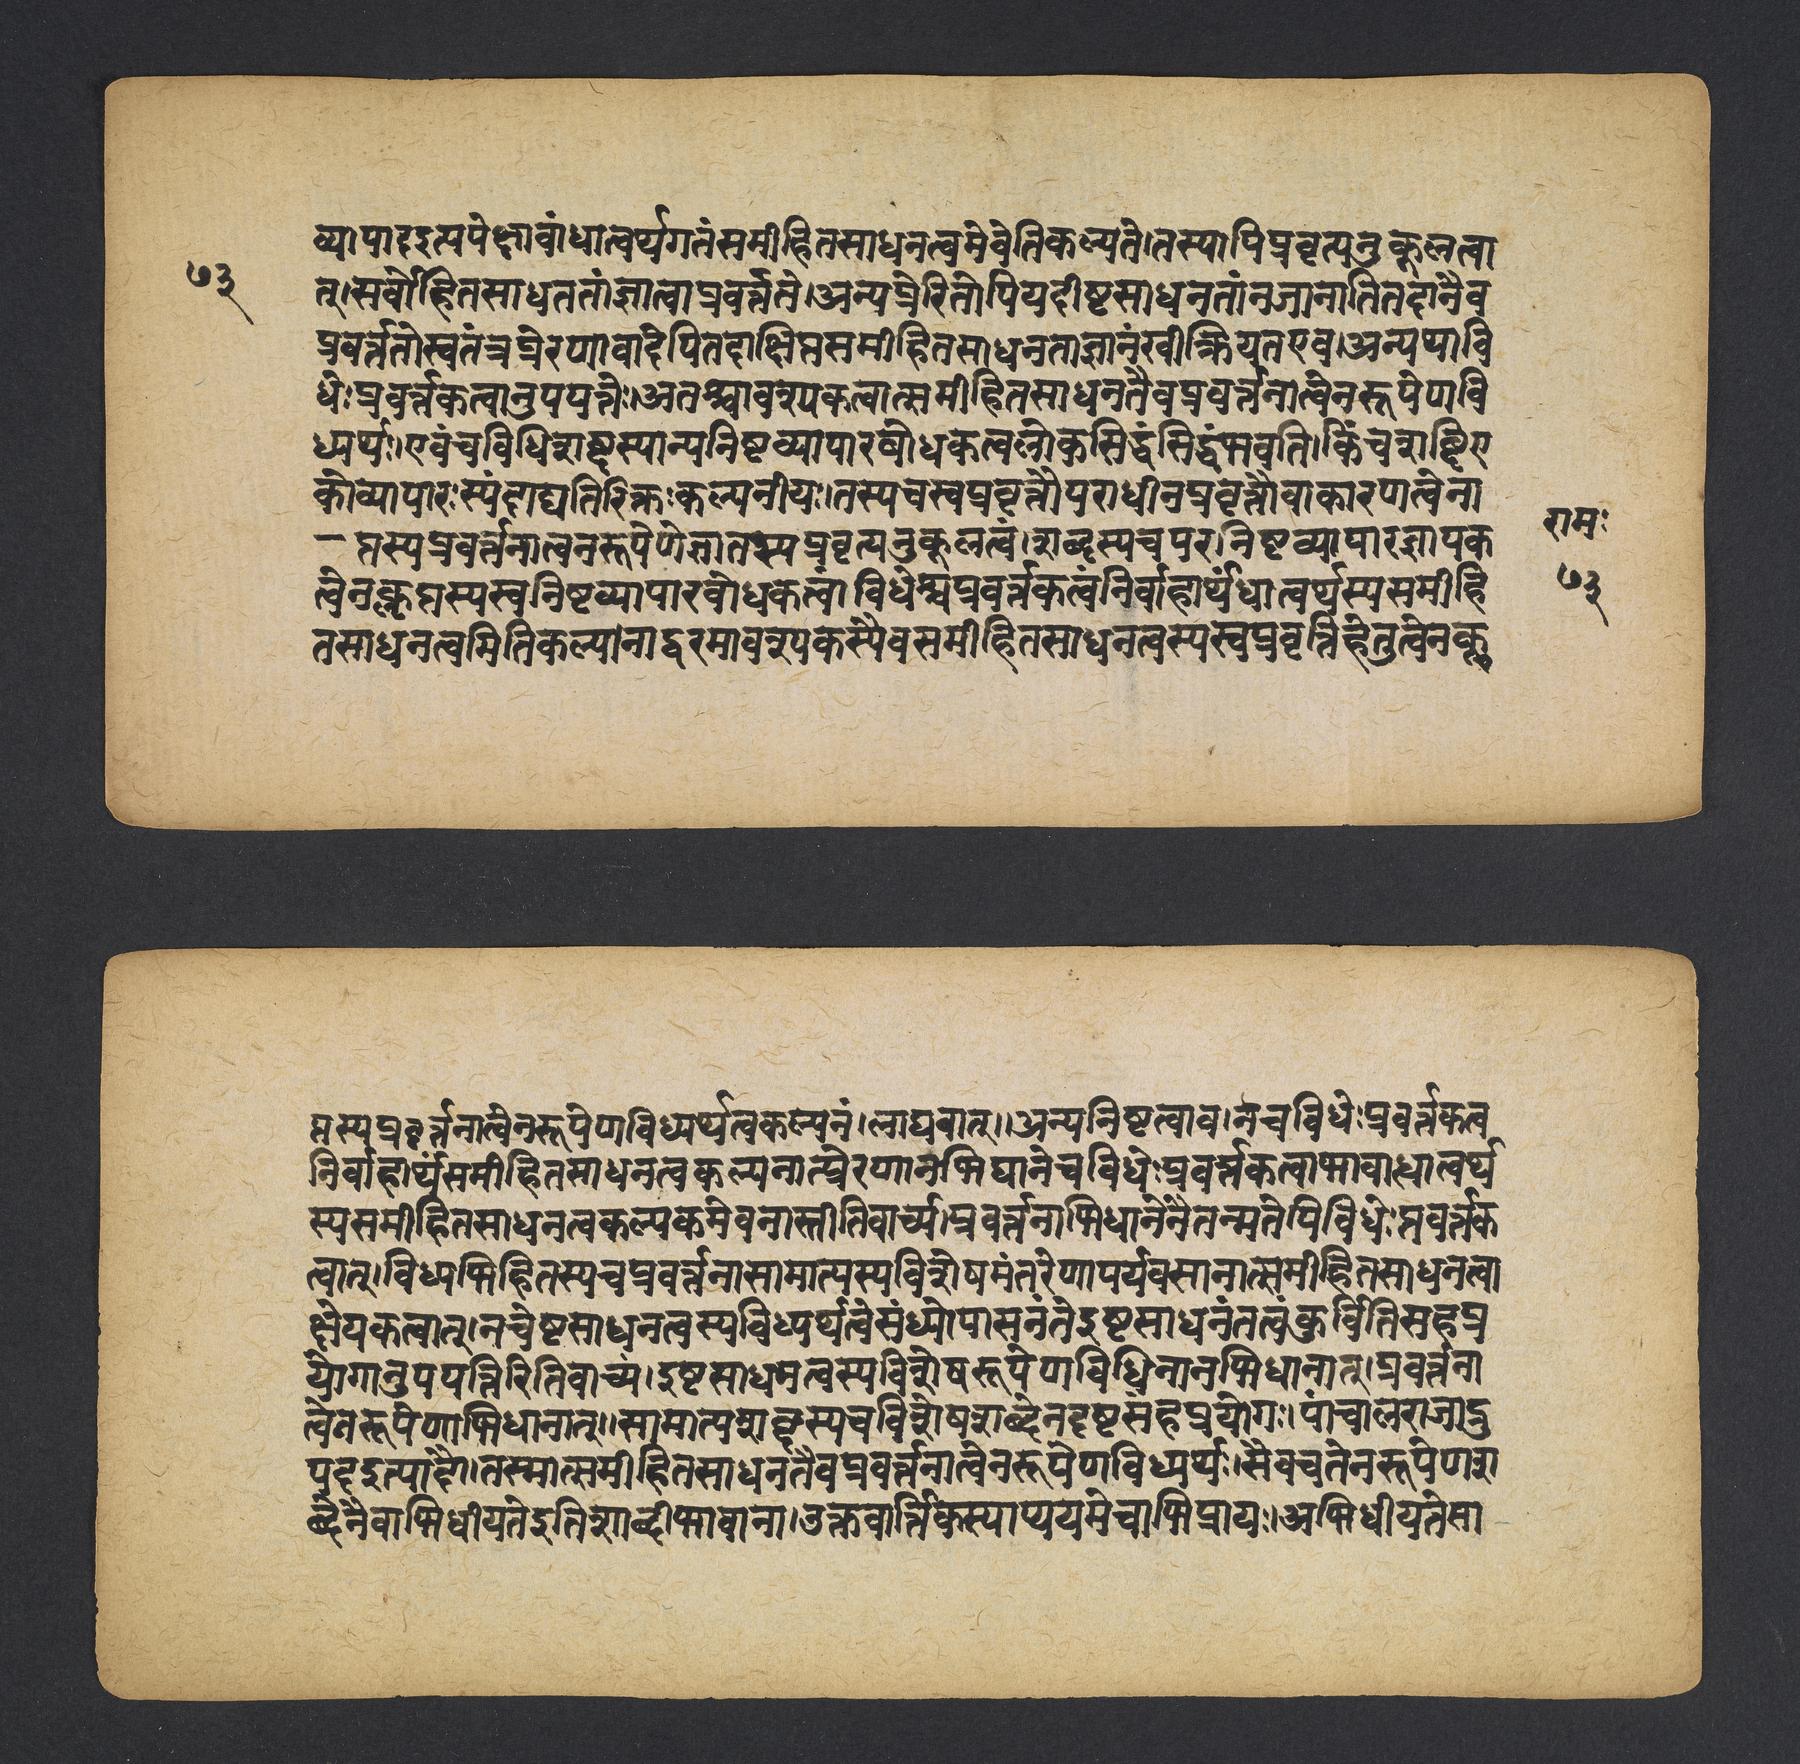 व्यापारइत्यपेक्षायांधात्वर्थगतंसमीहितसाधनत्वमेवेतिकल्प्यते।तस्यापिप्रवृत्यनुकूलत्वा
७३
त्।सर्वोहितसाधततांज्ञात्वाप्रवर्त्तते।अन्यप्रेरितोपियदीष्टसाधनतांनजानातितदानैव
प्रवर्त्ततोस्वतंत्रप्रेरणावादेपितदाक्षिप्तसमीहितसाधनताज्ञानंस्वीक्रियतएव।अन्यथावि
धेःप्रवर्त्तकत्वानुपपत्तेः।अतश्चावश्यकत्वात्समीहितसाधनतैवप्रवर्त्तनात्वेनरूपेणवि
ध्यर्थः।एवंचविधिशब्दस्यान्यनिष्टव्यापारबोधकत्वलोकसिद्धंसिद्धंभवति।किंचशब्दिए
कोव्यापारःस्पंदाद्यतिरिक्तःकल्पनीयः।तस्यचस्वप्रवृत्तौपराधीनप्रवृत्तौवाकारणत्वेना
प्तस्यप्रवर्त्तनात्वनरूपेणेज्ञातस्यप्रवृत्यनुकूलत्वं।शब्दस्यचपर।निष्टव्यापारज्ञापक
रामः
त्वेनकॢप्तस्यस्वनिष्टव्यापारबोधकत्वं।विधेश्चप्रवर्त्तकत्वंनिर्वाहार्थंधात्वर्थस्यसमीहि
७३
तसाधनत्वमितिकल्प।नाद्वरमावश्यकस्यैवसमीहितसाधनत्वस्यस्वप्रवृत्तिहेतुत्वेनकॢ
प्तस्यप्रवर्त्तनात्वेनरूपेणविध्यर्थत्वकल्पनं।लाघवात्।।अन्यनिष्टत्वाव।नचविधेःप्रवर्त्तकत्व
निर्वाहार्थंसमीहितसाधनत्वकल्पनात्प्रेरणानभिधानेचविधेःप्रवर्त्तकत्वाभावाधात्वर्थ
स्यसमीहितसाधनत्वकल्पकमेवनास्तीतिवाच्यं।प्रवर्त्तनाभिधानेनैतन्मतेपिविधेःप्रवर्त्तक
त्वात्।विध्यभिहितस्यचप्रवर्त्तनासामात्यस्यविशेषमंतरेणापर्यवसानात्समीहितसाधनत्वा
क्षेपकत्वात्।नचेष्टसाधनत्वस्यविध्यर्थत्वेसंध्योपासनंतेइष्टसाधनंतत्वंकुर्वितिसहप्र
योगानुपपत्तिरितिवाच्यं।इष्टसाधनत्वस्यविशेषरूपेणविधिनानभिधानात्।प्रवर्त्तना
त्वेनरूपेणाभिधानात्।।सामात्यशब्दस्यचविशेषशब्देनदृष्टसहप्रयोगः।पांचालराजाद्रु
पदइत्यादौ।तस्मात्समीहितसाधनतैवप्रवर्त्तनात्वेनरूपेणविध्यर्थः।सैवचतेनरूपेणश
ब्देनैवाभिधीयतेइतिशाब्दीभावाना।उक्तवार्त्तिकस्याप्ययमेचाभिप्रायः।अभिधीयतेसा